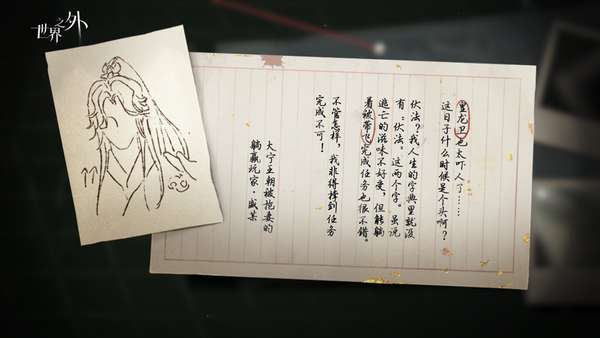 世界之外
黑龙卫也太吓人了……
这日子什么时候是个头啊？
伏法？我人生的字典里就没
有“伏法”这两个字。虽说
逃亡的滋味不好受，但能躺
着被带飞完成任务也很不错。
不管怎样，我非得撑到任务
完成不可！
大宁王朝被抱妻的
躺赢玩家·盛某